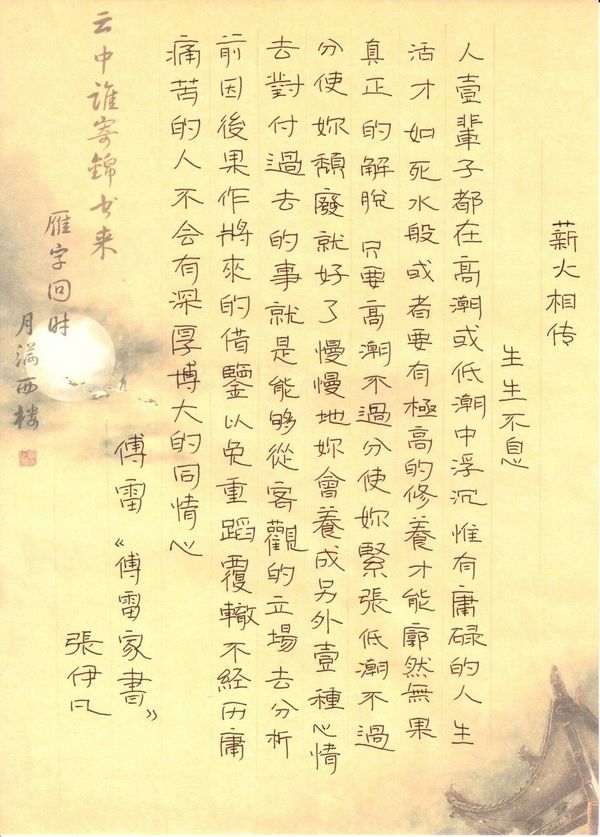 薪火相传
生生不息
人壹輩子都在高潮或低潮中浮沉惟有庸碌的人生
活才如死水般或者要有極高的修養才能廓然無果
真正的解脫 只要高潮不過分使妳緊張低潮不過
分使妳頹廢就好了慢慢地妳會養成另外壹種心情
去對付過去的事就是能夠從客觀的立場去分析
前因後果作將來的借鑒以免重蹈覆轍不經历庸
痛苦的人不会有深厚博大的同情心
傅雷《傅雷家書》
張伊凡
云中誰寄錦书来
雁字回时
月滿西楼